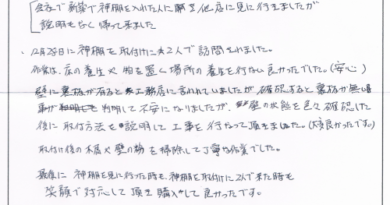 会社で新築で神棚を入れた人に聞き他店に見に行きましたが
説明もなく帰って来ました
・12月28日に神棚を取付けに2人で訪問されました。
作業は、床の養生や物を置く場所の養生を行ない良かったでした。(安心)
壁に裏板が有ると工務店に言われていましたが、確認すると裏板が無い
事が判明して不安になりましたが、壁の状態を色々確認した
後に取付方法を説明して工事を行なって頂きました。(大変良かったです)
取付け後の木屑や壁の粉を掃除して丁寧な作業でした。
最後に神棚を見に行った時も、神棚を取付けに2人で来た時も
笑顔で対応して頂き購入して良かったです。